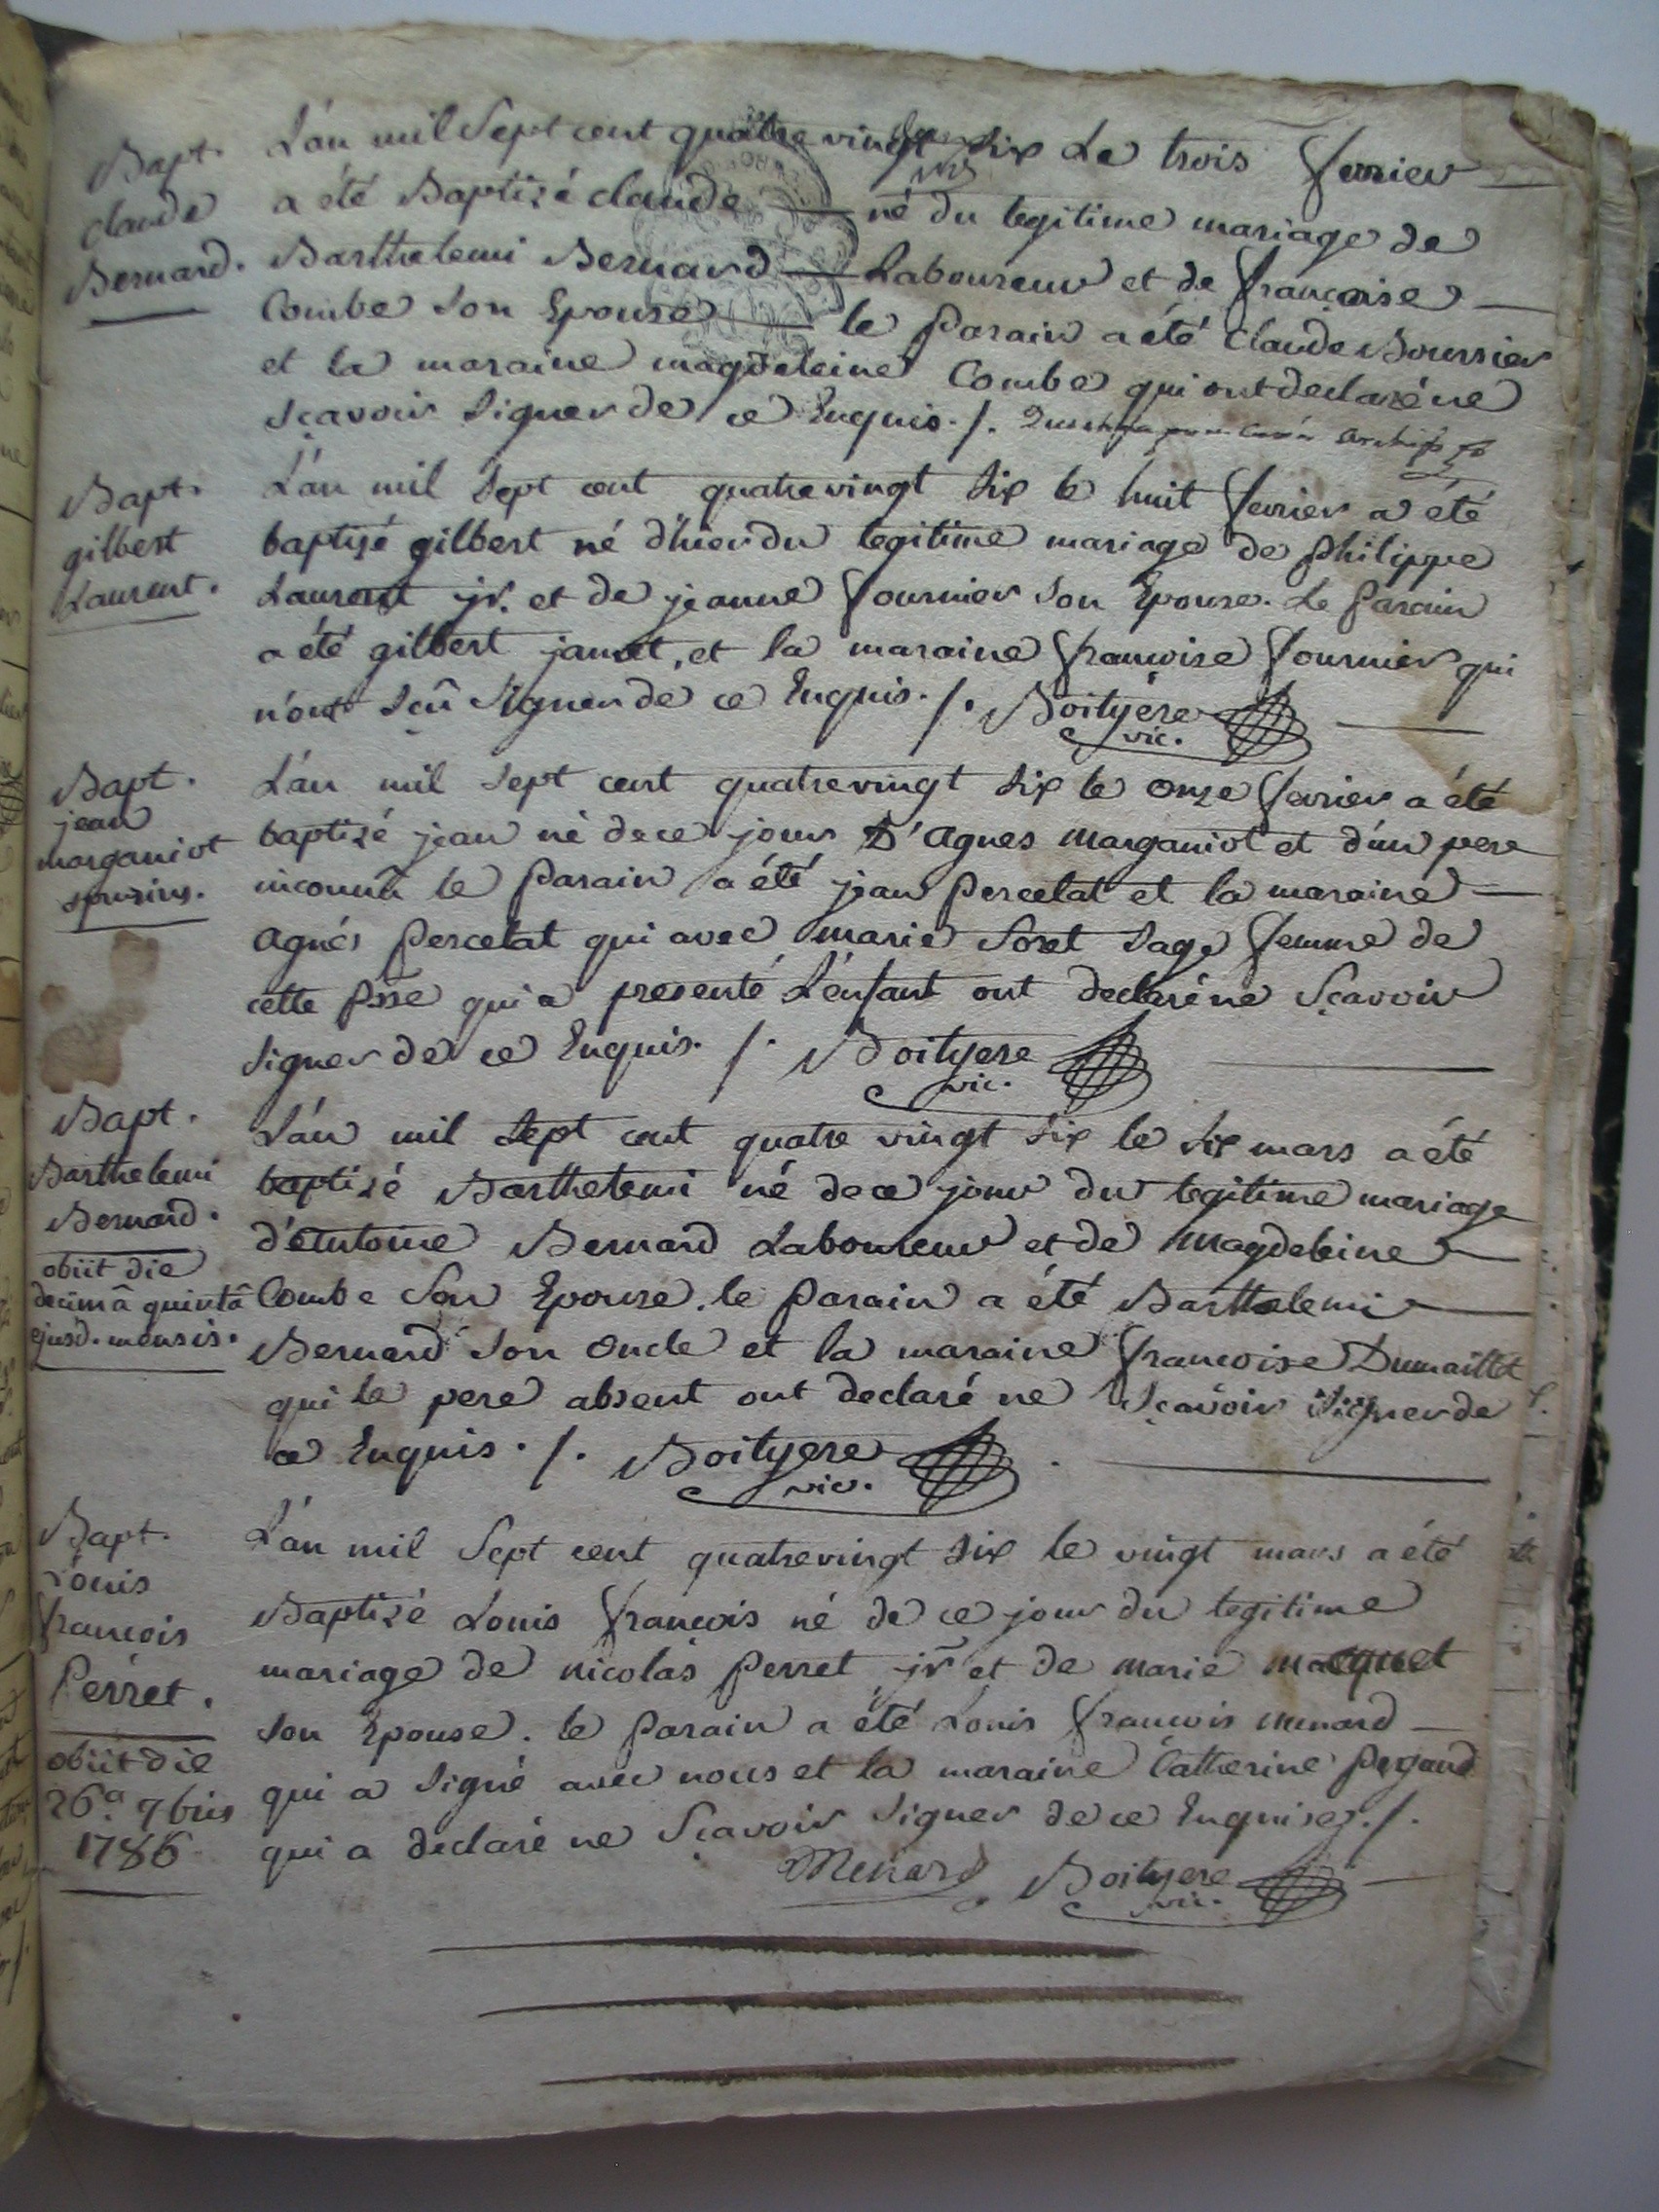 Bapt.
claude
Bernard.
L'an mil Sept cent quatre vingt Six Le trois fevrier
a été Baptizé claude né du legitime mariage de
Barthelemi Bernard Laboureur et de françoise
Combe Son Epouse le Parain a été Claude Boursier
et la maraine magdeleine Combe qui ont declaré ne
Sçavoir Signer de ce Enquis ./.
Bapt.
gilbert
Laurent.
L'an mil Sept cent quatrevingt Six le huit fevrier a été
baptizé gilbert né d'hier du legitime mariage de philippe
Laurent jr. et de jeanne fournier Son Epouse. Le Parain
a été gilbert jamet, et la maraine françoise fournier qui
n'ont Sçû Signer de ce Enquis ./. Boityere
vic.
Bapt.
jean
marganiot
spurius.
L'an mil Sept cent quatrevingt Six le onze fevrier a été
baptizé jean né de ce jour D'agnes marganiot et d'un pere
inconnu le Parain a été jean percelat et la maraine
agnés percelat qui avec marie Soret Sage femme de
cette psse qui a presenté L'enfant ont declaré ne Sçavoir
Signer de ce Enquis ./. Boityere
vic.
Bapt.
Barthelemi
Bernard.
obiit die
decimâ quintâ
ejusd. mensis.
L'an mil Sept cent quatre vingt Six le Six mars a été
baptizé Barthelemi né de ce jour du legitime mariage
d'Antoine Bernard Laboureur et de magdeleine
Combe Son Epouse. le Parain a été Barthelemi
Bernard Son oncle et la maraine françoise Dumaillet
qui le pere absent ont declaré ne Sçavoir Signer de
ce Enquis ./. Boityere
vic.
Bapt.
Louis
françois
Perret.
obiit die
26.a 7bris
1786
L'an mil Sept cent quatrevingt Six le vingt mars a été
Baptizé Louis françois né de ce jour du legitime
mariage de nicolas perret jr et de marie macquet
Son Epouse. le Parain a été Louis françois menard
qui a Signé avec nous et la maraine Catherine Pegand
qui a declaré ne Sçavoir Signer de ce Enquise ./.
Menard Boityere
vic.